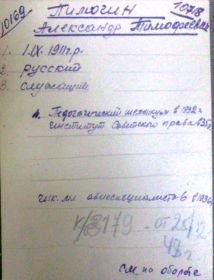 10169
Пилюгин 1078
Александр Тимофеевич
1. 1.IX.1911 г.р.
2. русский
3. служащий
4. Педагогический техникум в 1932 г
институт Советского права в 35г
авиаспециалистов в 1936г
179 - от 25/12
43 г
см на обороте